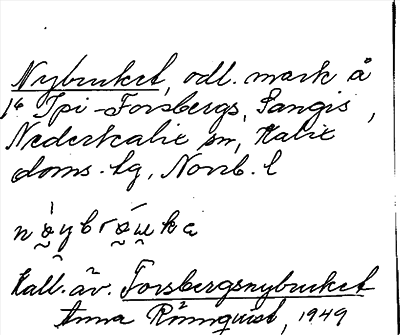 Nybruket, odl. mark å
Ipi-Forsbergs, Sangis,
Nederkalix sn, Kalix
doms. lg, Norrb. l
Kall. äv. Forsbergsnybruket
Anna Rönnqvist, 1949